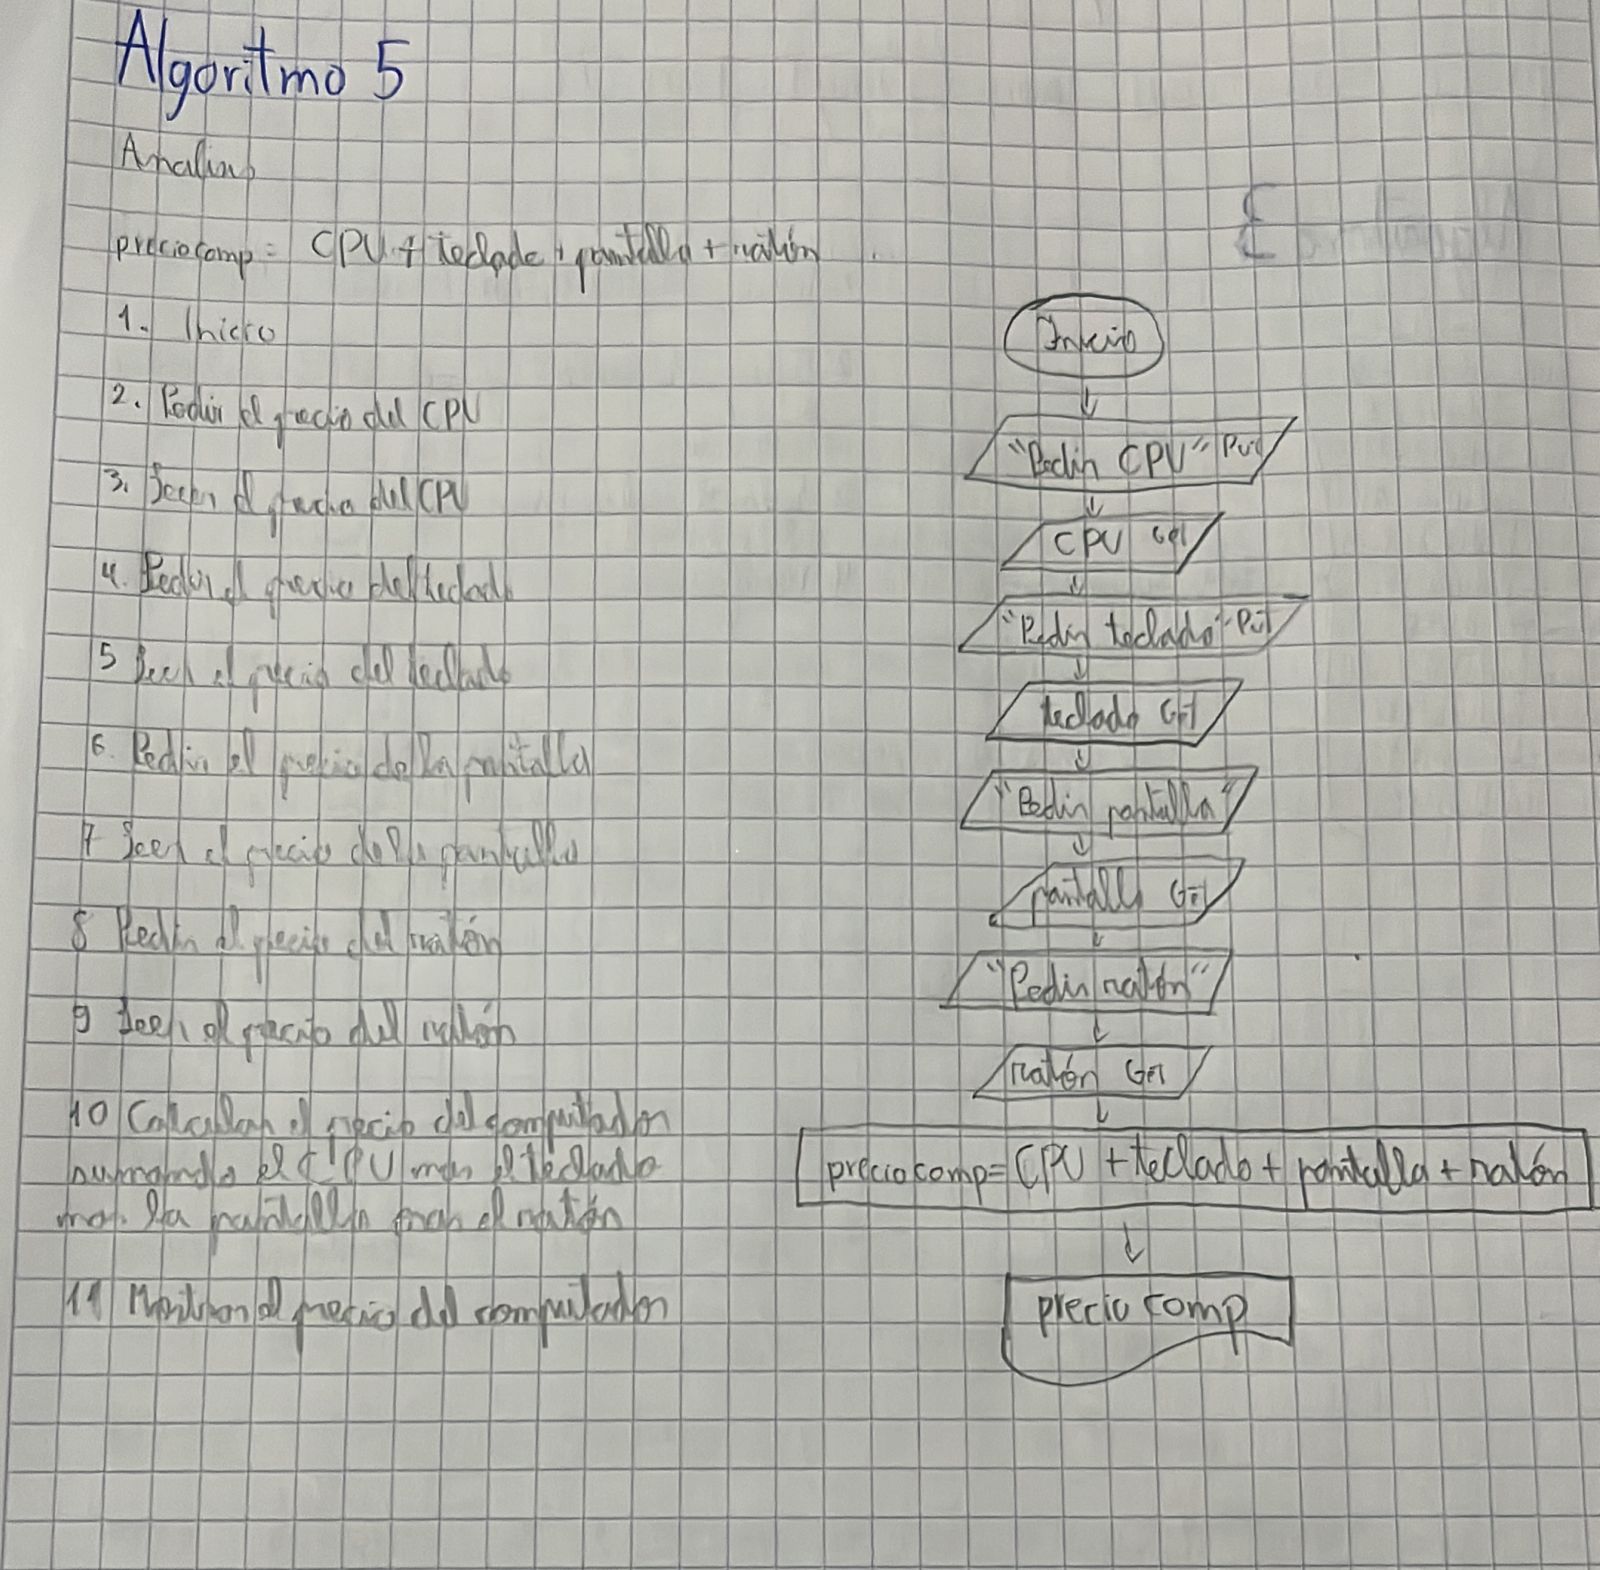 Algoritmo 5
Analisis
preciocomp = CPU + teclado + pantalla + ratón
1. Inicio
2. Pedir el precio del CPU
3. Leer el precio del CPU
4. Pedir el precio del teclado
5 Leer el precio del teclado
6. Pedir el precio de la pantalla
7 Leer el precio de la pantalla
8 Pedir el precio del ratón
9 Leer el precio del ratón
10 Calcular el precio del computador
sumando el CPU mas el teclado
mas la pantalla mas el ratón
11 Mostrar el precio del computador
Inicio
"Pedir CPU" Put
CPU Get
"Pedir teclado" Put
teclado Get
"Pedir pantalla"
pantalla Get
"Pedir ratón"
ratón Get
preciocomp = CPU + teclado + pantalla + ratón
precio comp